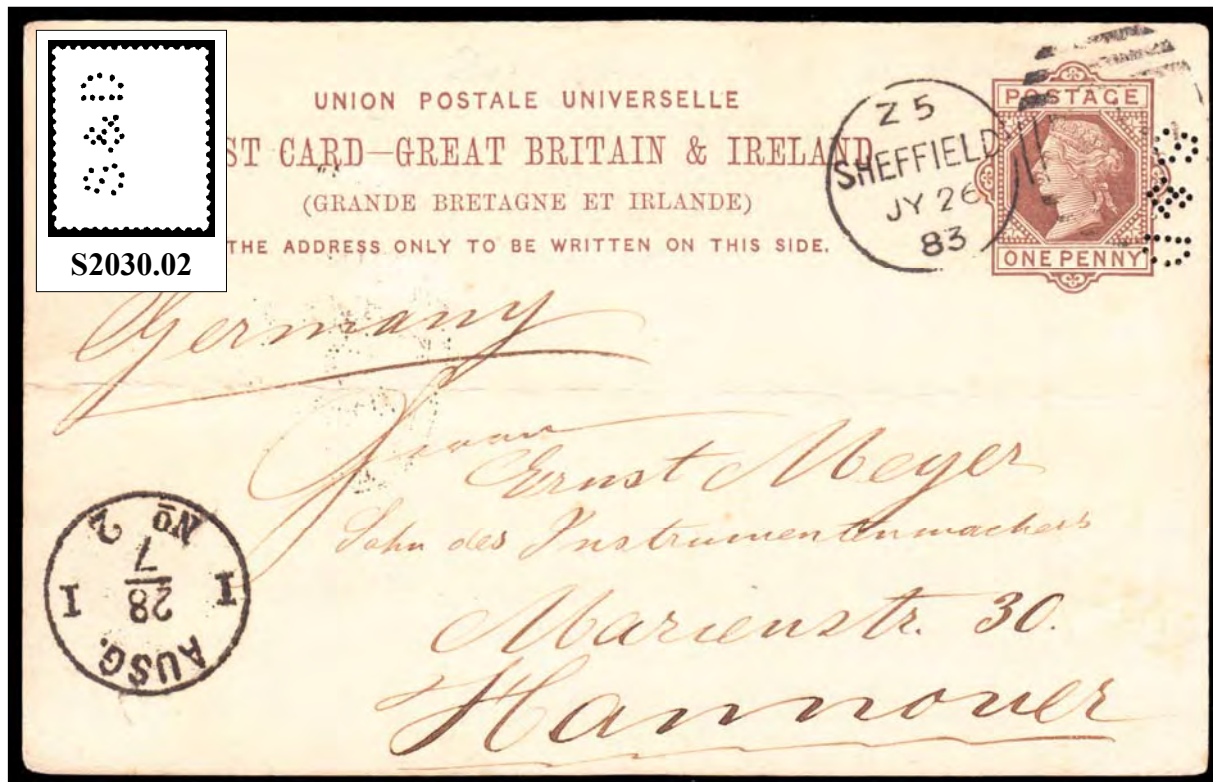 S&D
S2030.02
UNION POSTALE UNIVERSELLE
ST CARD—GREAT BRITAIN & IRELAND
(GRANDE BRETAGNE ET IRLANDE)
THE ADDRESS ONLY TO BE WRITTEN ON THIS SIDE.
Z 5
SHEFFIELD
JY 26
83
POSTAGE
ONE PENNY
S&D
Germany
Herrn
Ernst Meyer
Sohn des Instrumentenmachers
Marienstr. 30.
Hannover
AUSG.
I 28 I
7
No 2